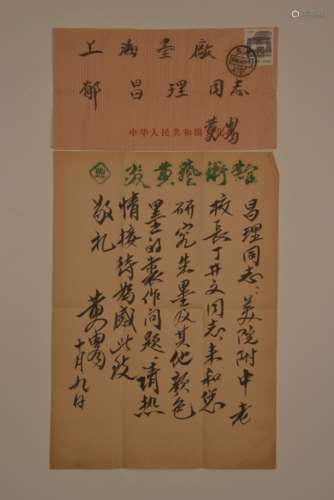 上海墨廠
郁昌理同志
中华人民共和国文化部
黄胄
炎黄藝術館
昌理同志：美院附中老
校長丁井文同志来和您
研究生墨及其他颜色
墨的製作问题，请热
情接待为感此致
敬礼
黄胄
十月九日